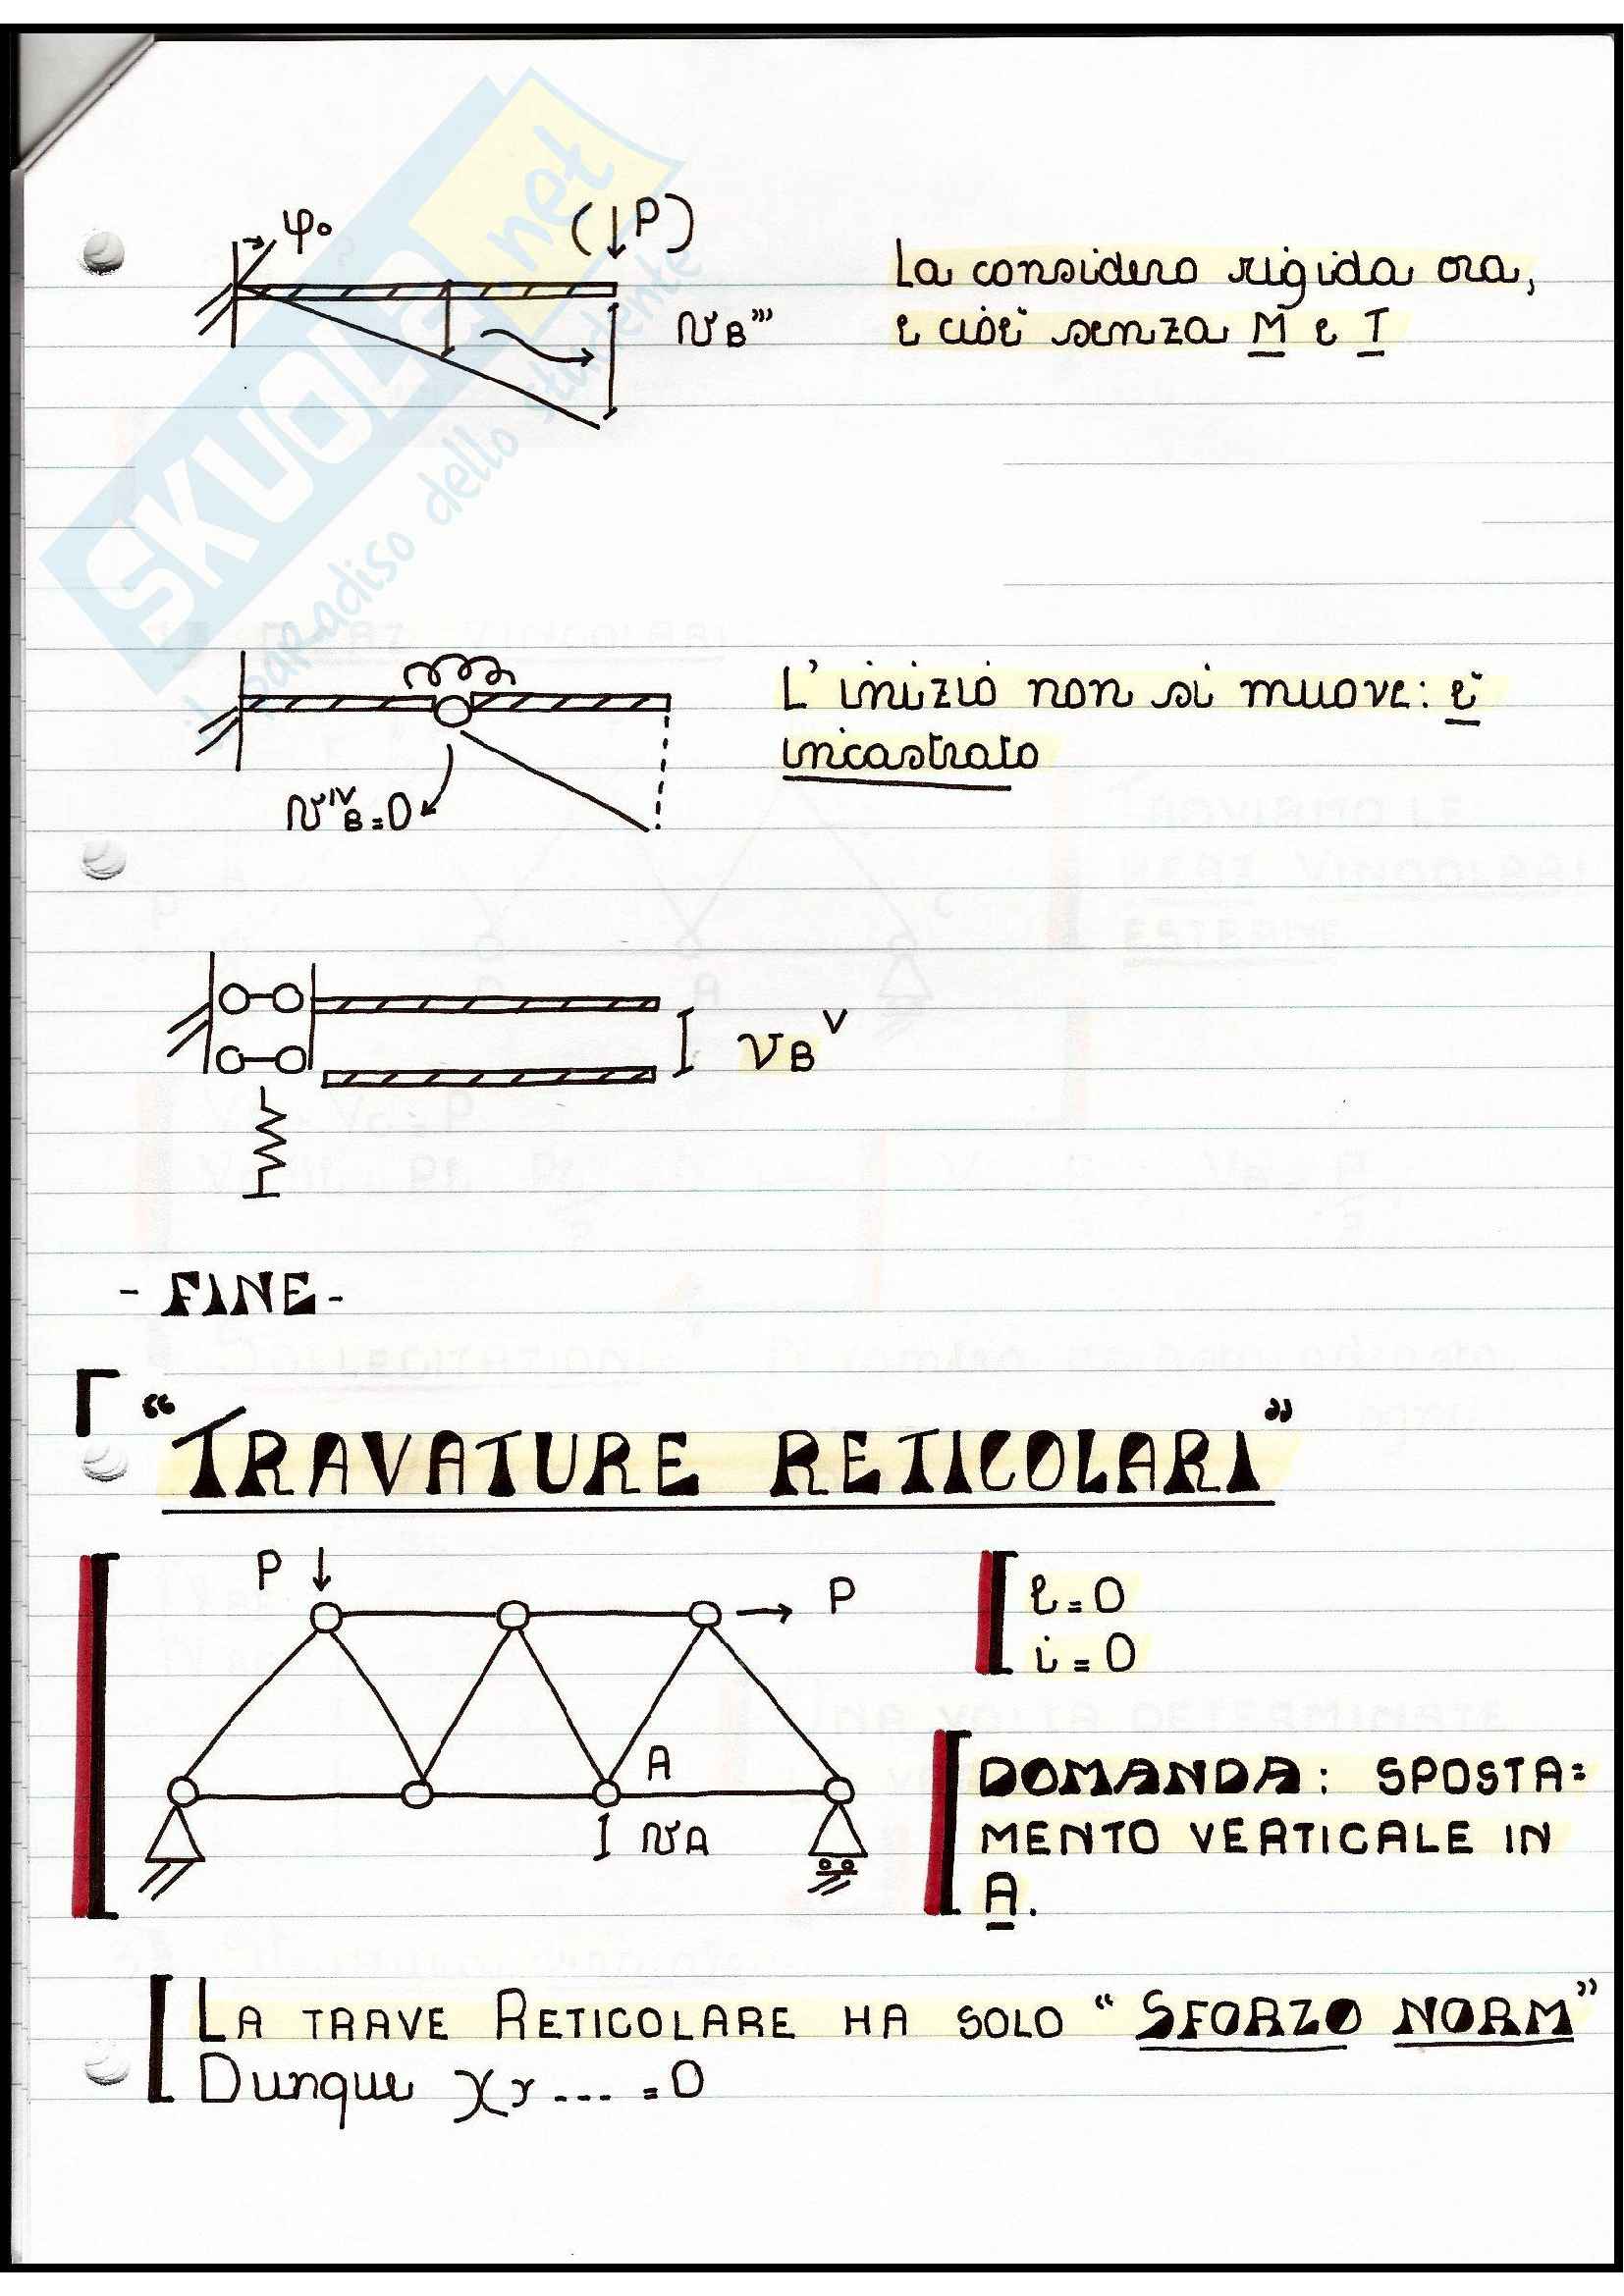 SKUOLA.net
il paradiso dello studente
φ₀
(↓P)
La considero rigida ora,
e cioè senza M e T
vB'''
L'inizio non si muove: è
incastrato
vᴵⱽB=0
vBⱽ
- FINE -
"TRAVATURE RETICOLARI"
P ↓
→ P
l=0
i=0
A
vA
DOMANDA: SPOSTA=
MENTO VERTICALE IN
A.
LA TRAVE RETICOLARE HA SOLO "SFORZO NORM"
Dunque χ, γ --- =0